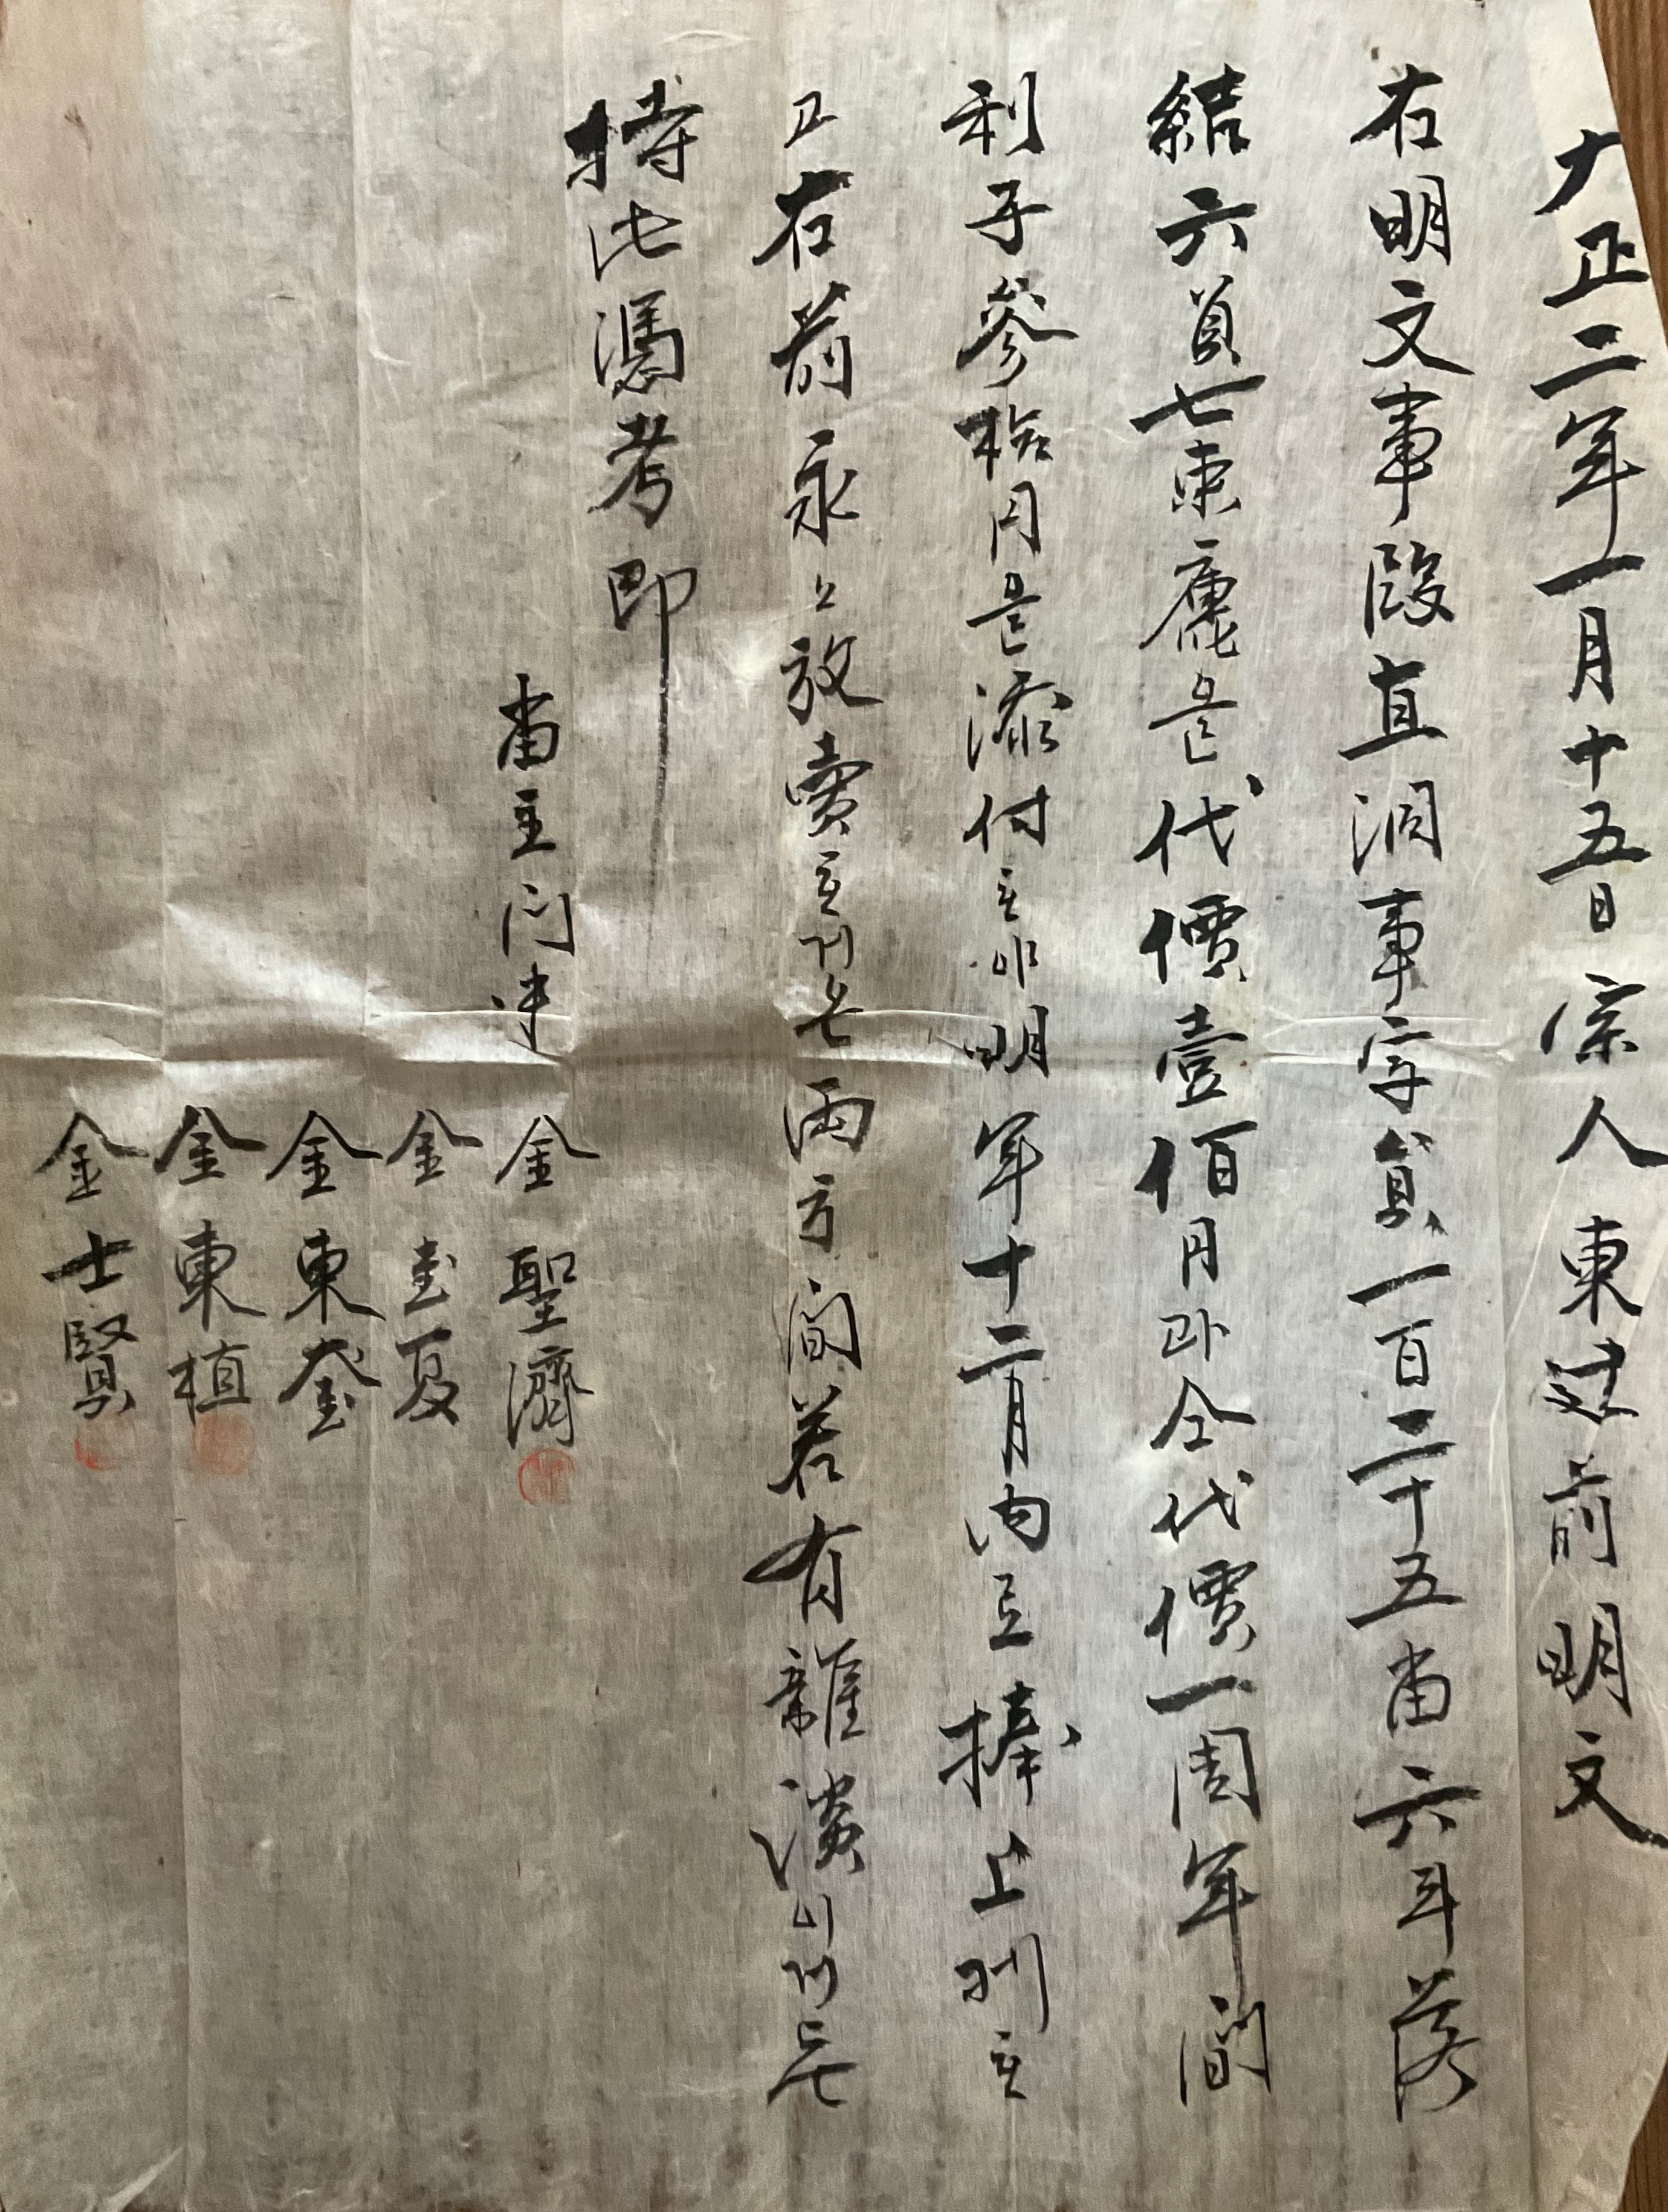 大正二年一月十五日宗人東 前明文
右明文事段直洞事字員一百二十五畓六斗落
結六負七束庫은代價壹佰円과仝代價一周年間
利子參拾円은添付호야明年十二月內로捧上허
고右前永〻放賣호거온兩方間若有雜談이거든
持此憑考印
畓主門中
金聖濟
金 夏
金東奎
金東植
金士賢